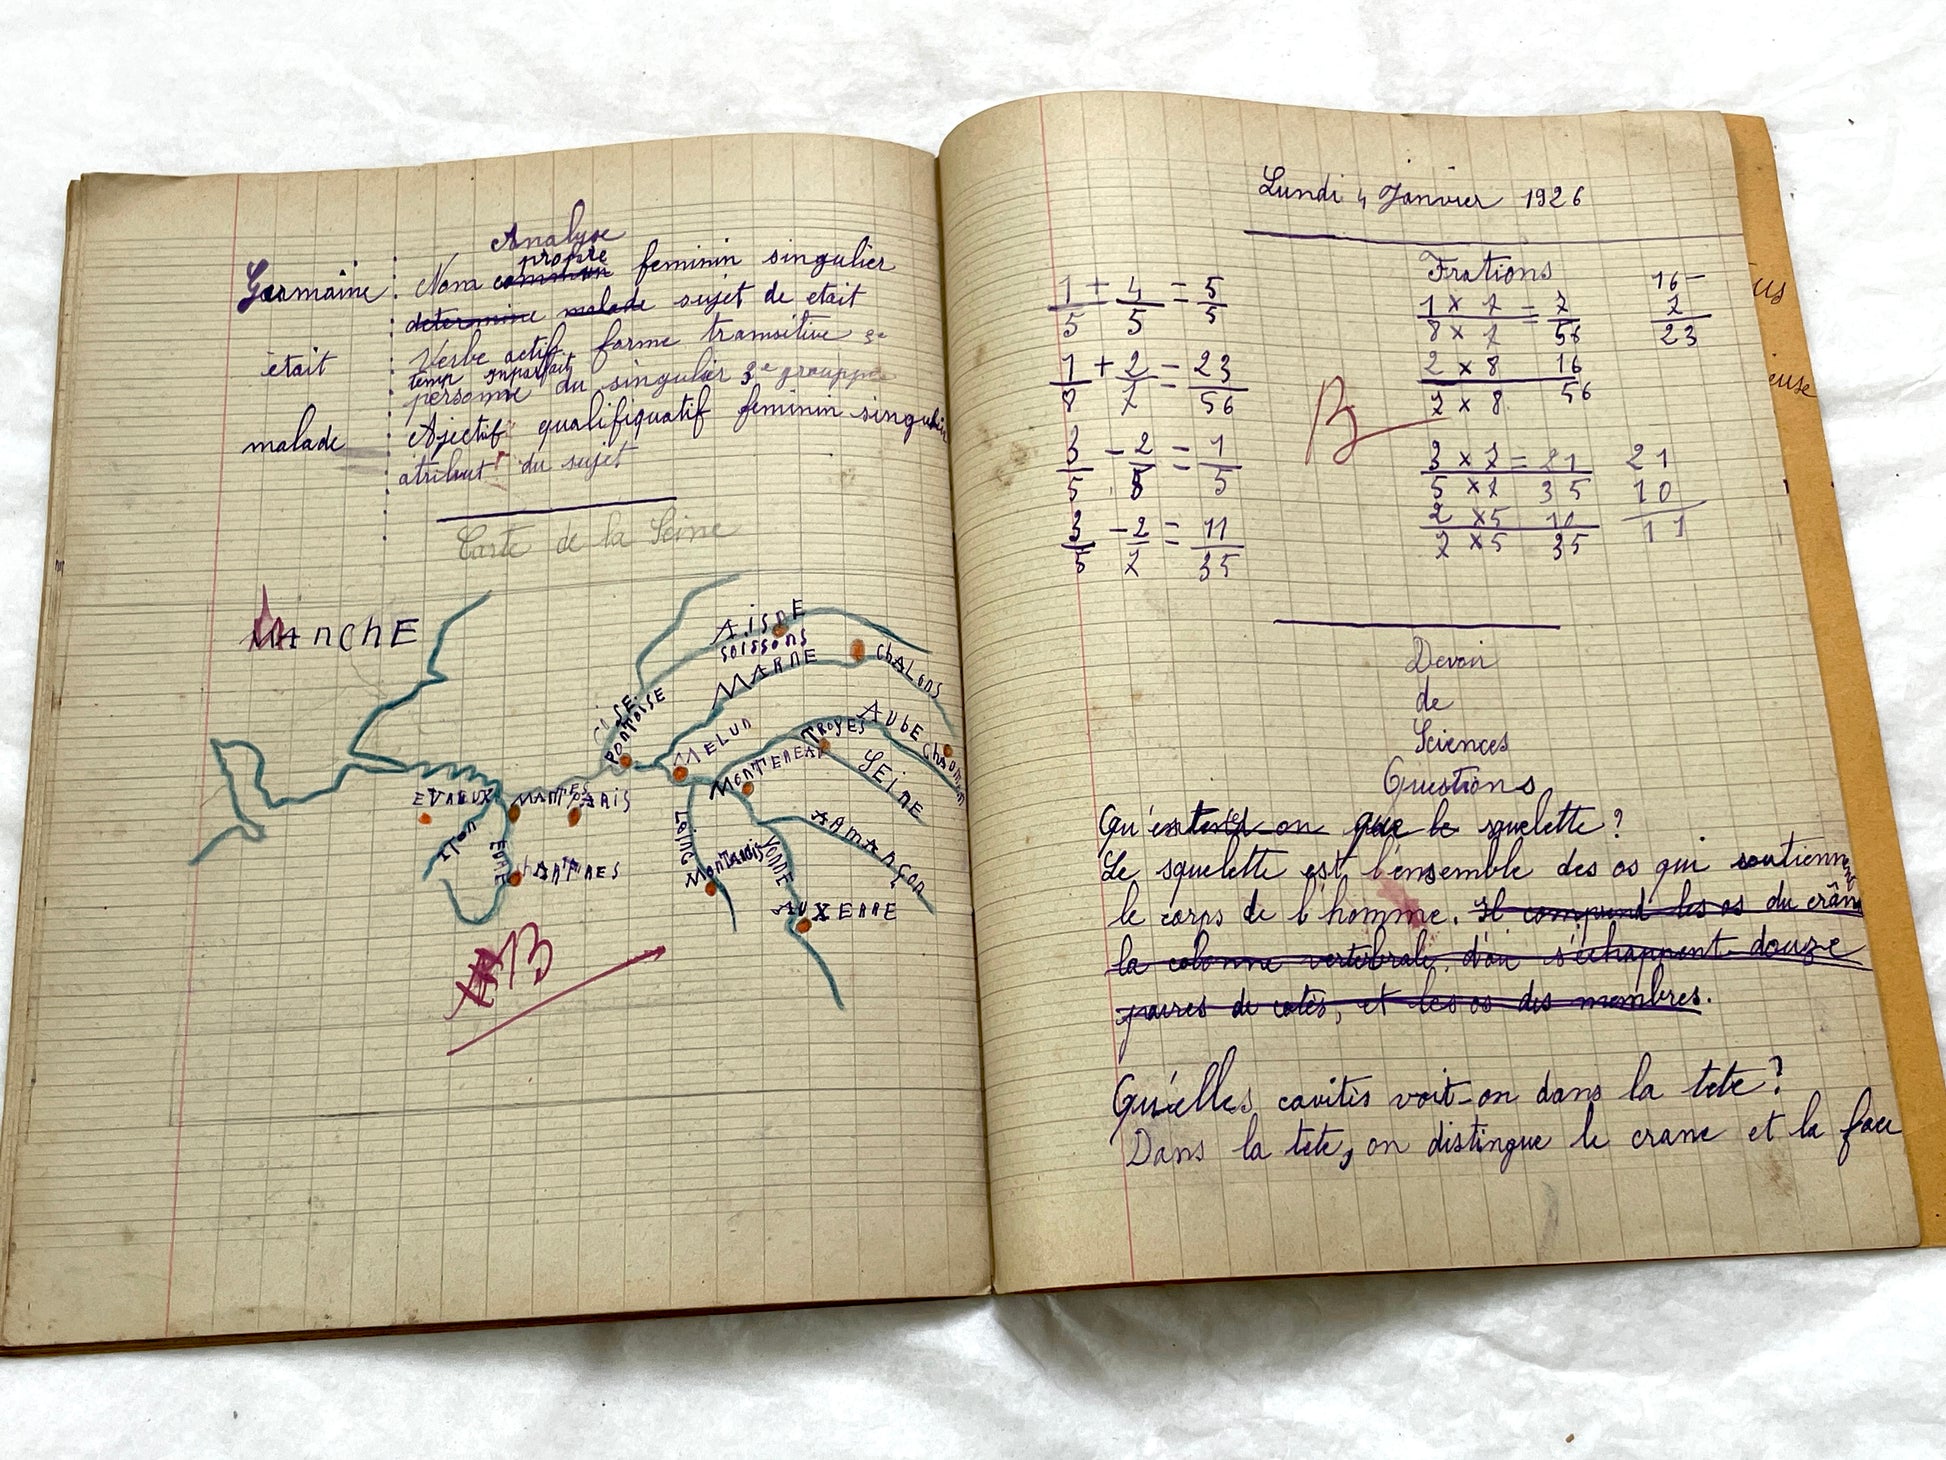 Analyse
propre
Germaine : Nom commun feminin singulier
determine malade sujet de etait
était : Verbe actif forme transitive 3e
temp imparfait
personne du singulier 3e grouppe
malade : Ajectif qualifiquatif feminin singulier
atribut du sujet
Carte de la Seine
MAnChE
AisnE
soissons
MARNE
ChALons
OisE
PONTOISE
MELUn
MONTEREAU
TROYES
AUbE
ChAumon
SEinE
EVREUX
MANTES
PARIS
ITon
EURE
ChARTRES
LOinG
MonTARGis
YONNE
ARMAnÇon
AUXERRE
13
Lundi 4 Janvier 1926
Frations
1/5 + 4/5 = 5/5
1/8 + 2/7 = 23/56
3/5 - 2/5 = 1/5
3/5 - 2/7 = 11/35
1 x 7 = 7
8 x 7 = 56
2 x 8 16
7 x 8 56
16
7
23
B
3 x 7 = 21
5 x 7 35
2 x 5 10
7 x 5 35
21
10
11
Devoir
de
Sciences
Questions
Qu'entend-on que le squelette ?
Le squelette est l'ensemble des os qui soutienne
le corps de l'homme. Il comprend les os du crâne
la colonne vertébrale, d'où s'échappent douze
paires de cotés, et les os des membres.
Qu'elles cavités voit-on dans la tete ?
Dans la tete, on distingue le crane et la face
euse